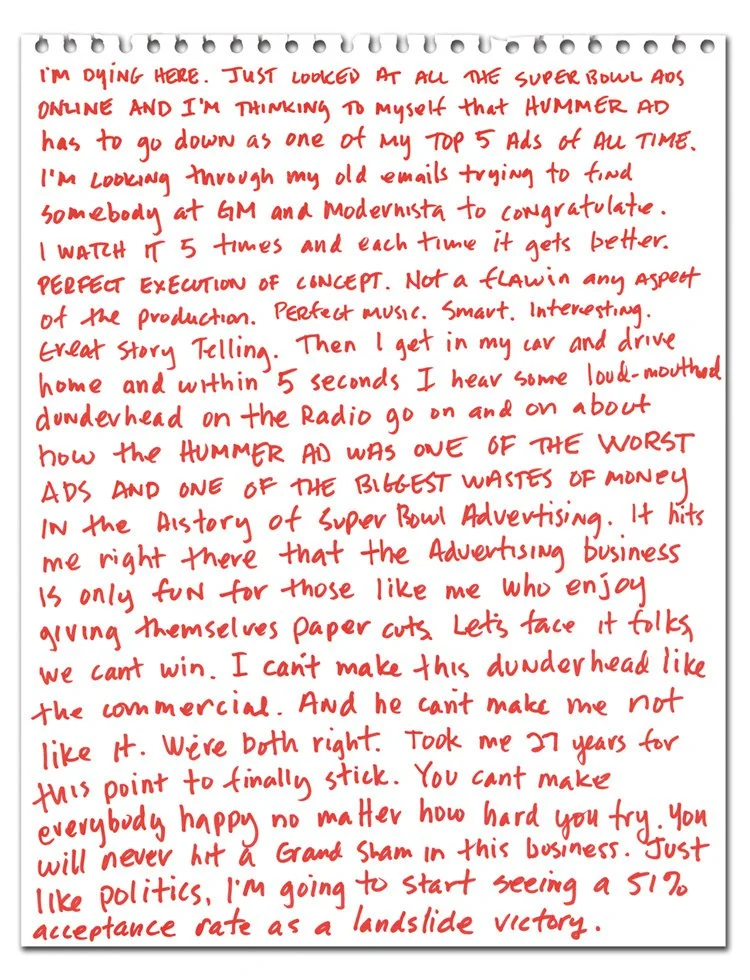 I'M DYING HERE. JUST LOOKED AT ALL THE SUPER BOWL ADS
ONLINE AND I'M THINKING TO MYSELF that HUMMER AD
has to go down as one of my TOP 5 Ads of ALL TIME.
I'M LOOKING through my old emails trying to find
somebody at GM and Modernista to congratulate.
I WATCH IT 5 times and each time it gets better.
PERFECT EXECUTION OF CONCEPT. Not a FLAW in any ASPECT
of the production. PERFECT MUSIC. Smart. Interesting.
Great Story Telling. Then I get in my car and drive
home and within 5 seconds I hear some loud-mouthed
dunderhead on the Radio go on and on about
how the HUMMER AD WAS ONE OF THE WORST
ADS AND ONE OF THE BIGGEST WASTES OF MONEY
IN the History of Super Bowl Advertising. It hits
me right there that the Advertising business
is only fun for those like me who enjoy
giving themselves paper cuts. Let's face it folks,
we can't win. I can't make this dunderhead like
the commercial. And he can't make me not
like it. We're both right. Took me 27 years for
this point to finally stick. You cant make
everybody happy no matter how hard you try. You
will never hit a Grand Slam in this business. Just
like politics, I'm going to start seeing a 51%
acceptance rate as a landslide victory.